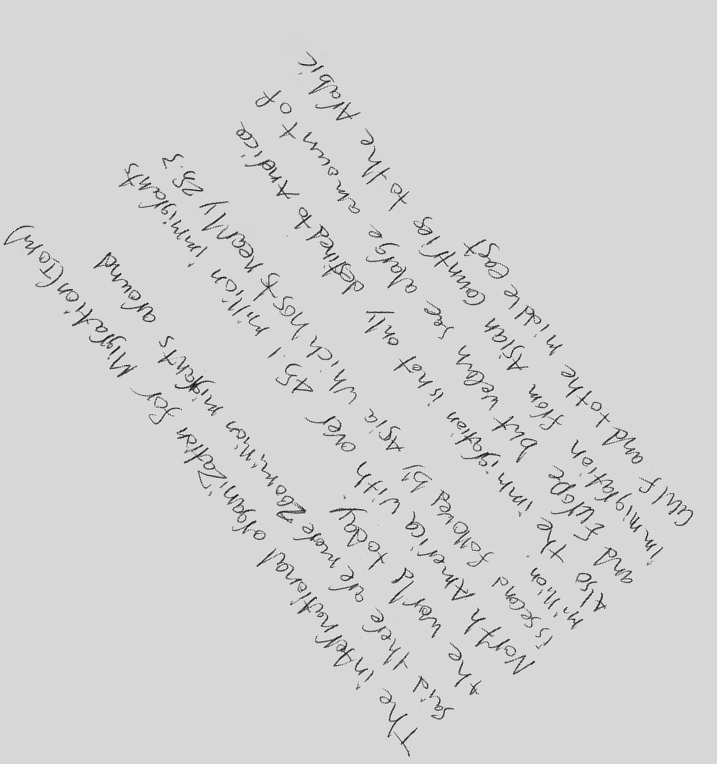 The international organization for Migration (IOM)
said there are more 200 million migrants around
the world today.
North America with over 45.1 million immigrants
is second followed by Asia which hosts nearly 25.3
million.
Also the immigration is not only destined to America
and Europe but we can see a large amount of
immigration from Asian countries to the Arabic
Gulf and to the middle east